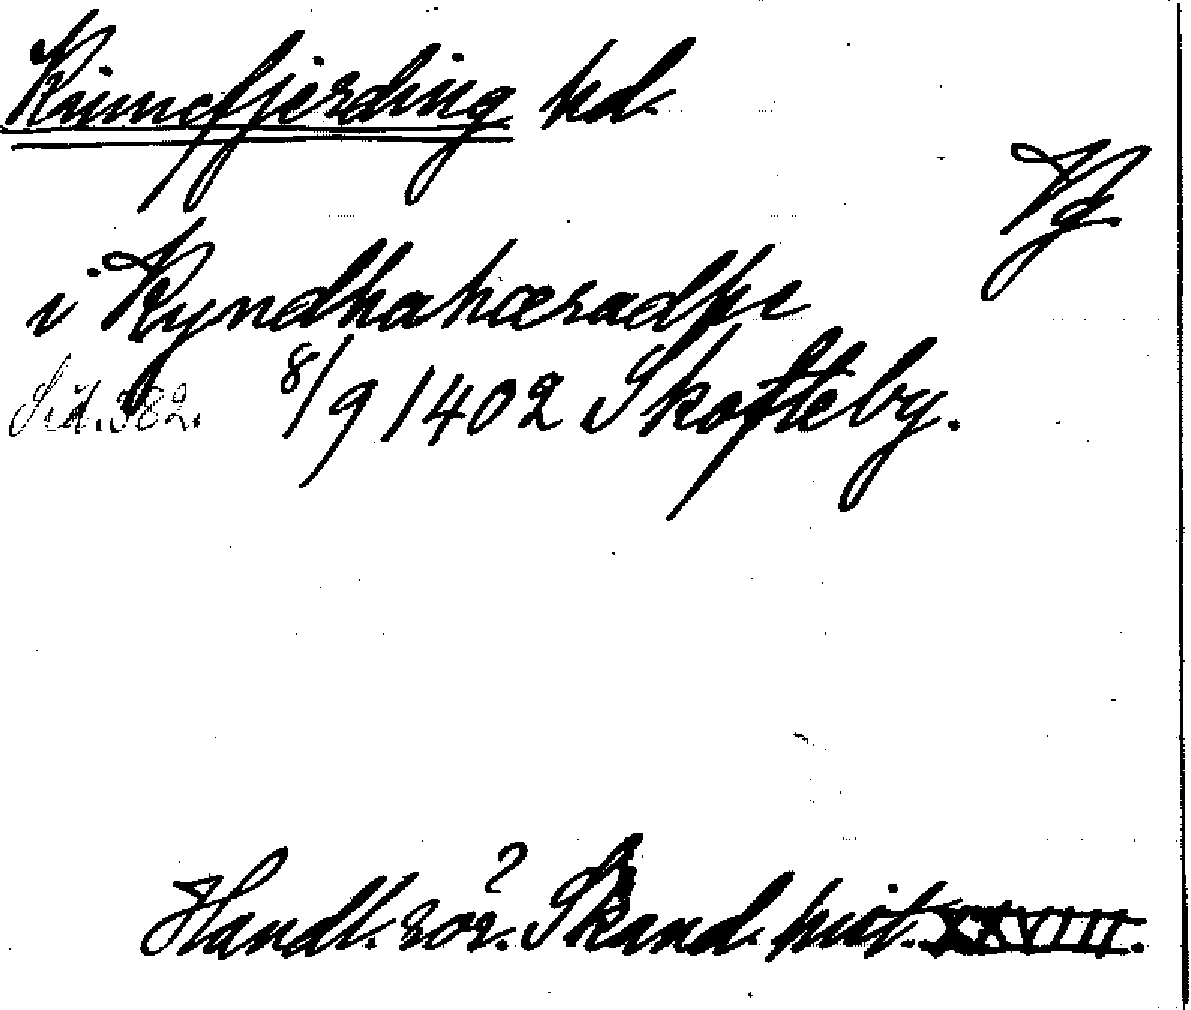 Kinnefjerding hd.
Vg
i Kyndhahæradhe
Sid. 382. 8/9 1402 Skofteby.
Handl. rör. Skand. hist. XXVIII.